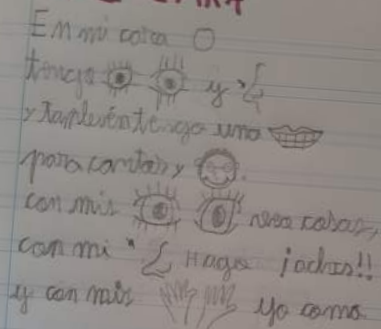 En mi carea
tengo y
y también tengo una
para cantar, y
con mis veo cosas,
con mi Hago ¡achis!!
y con mis yo como